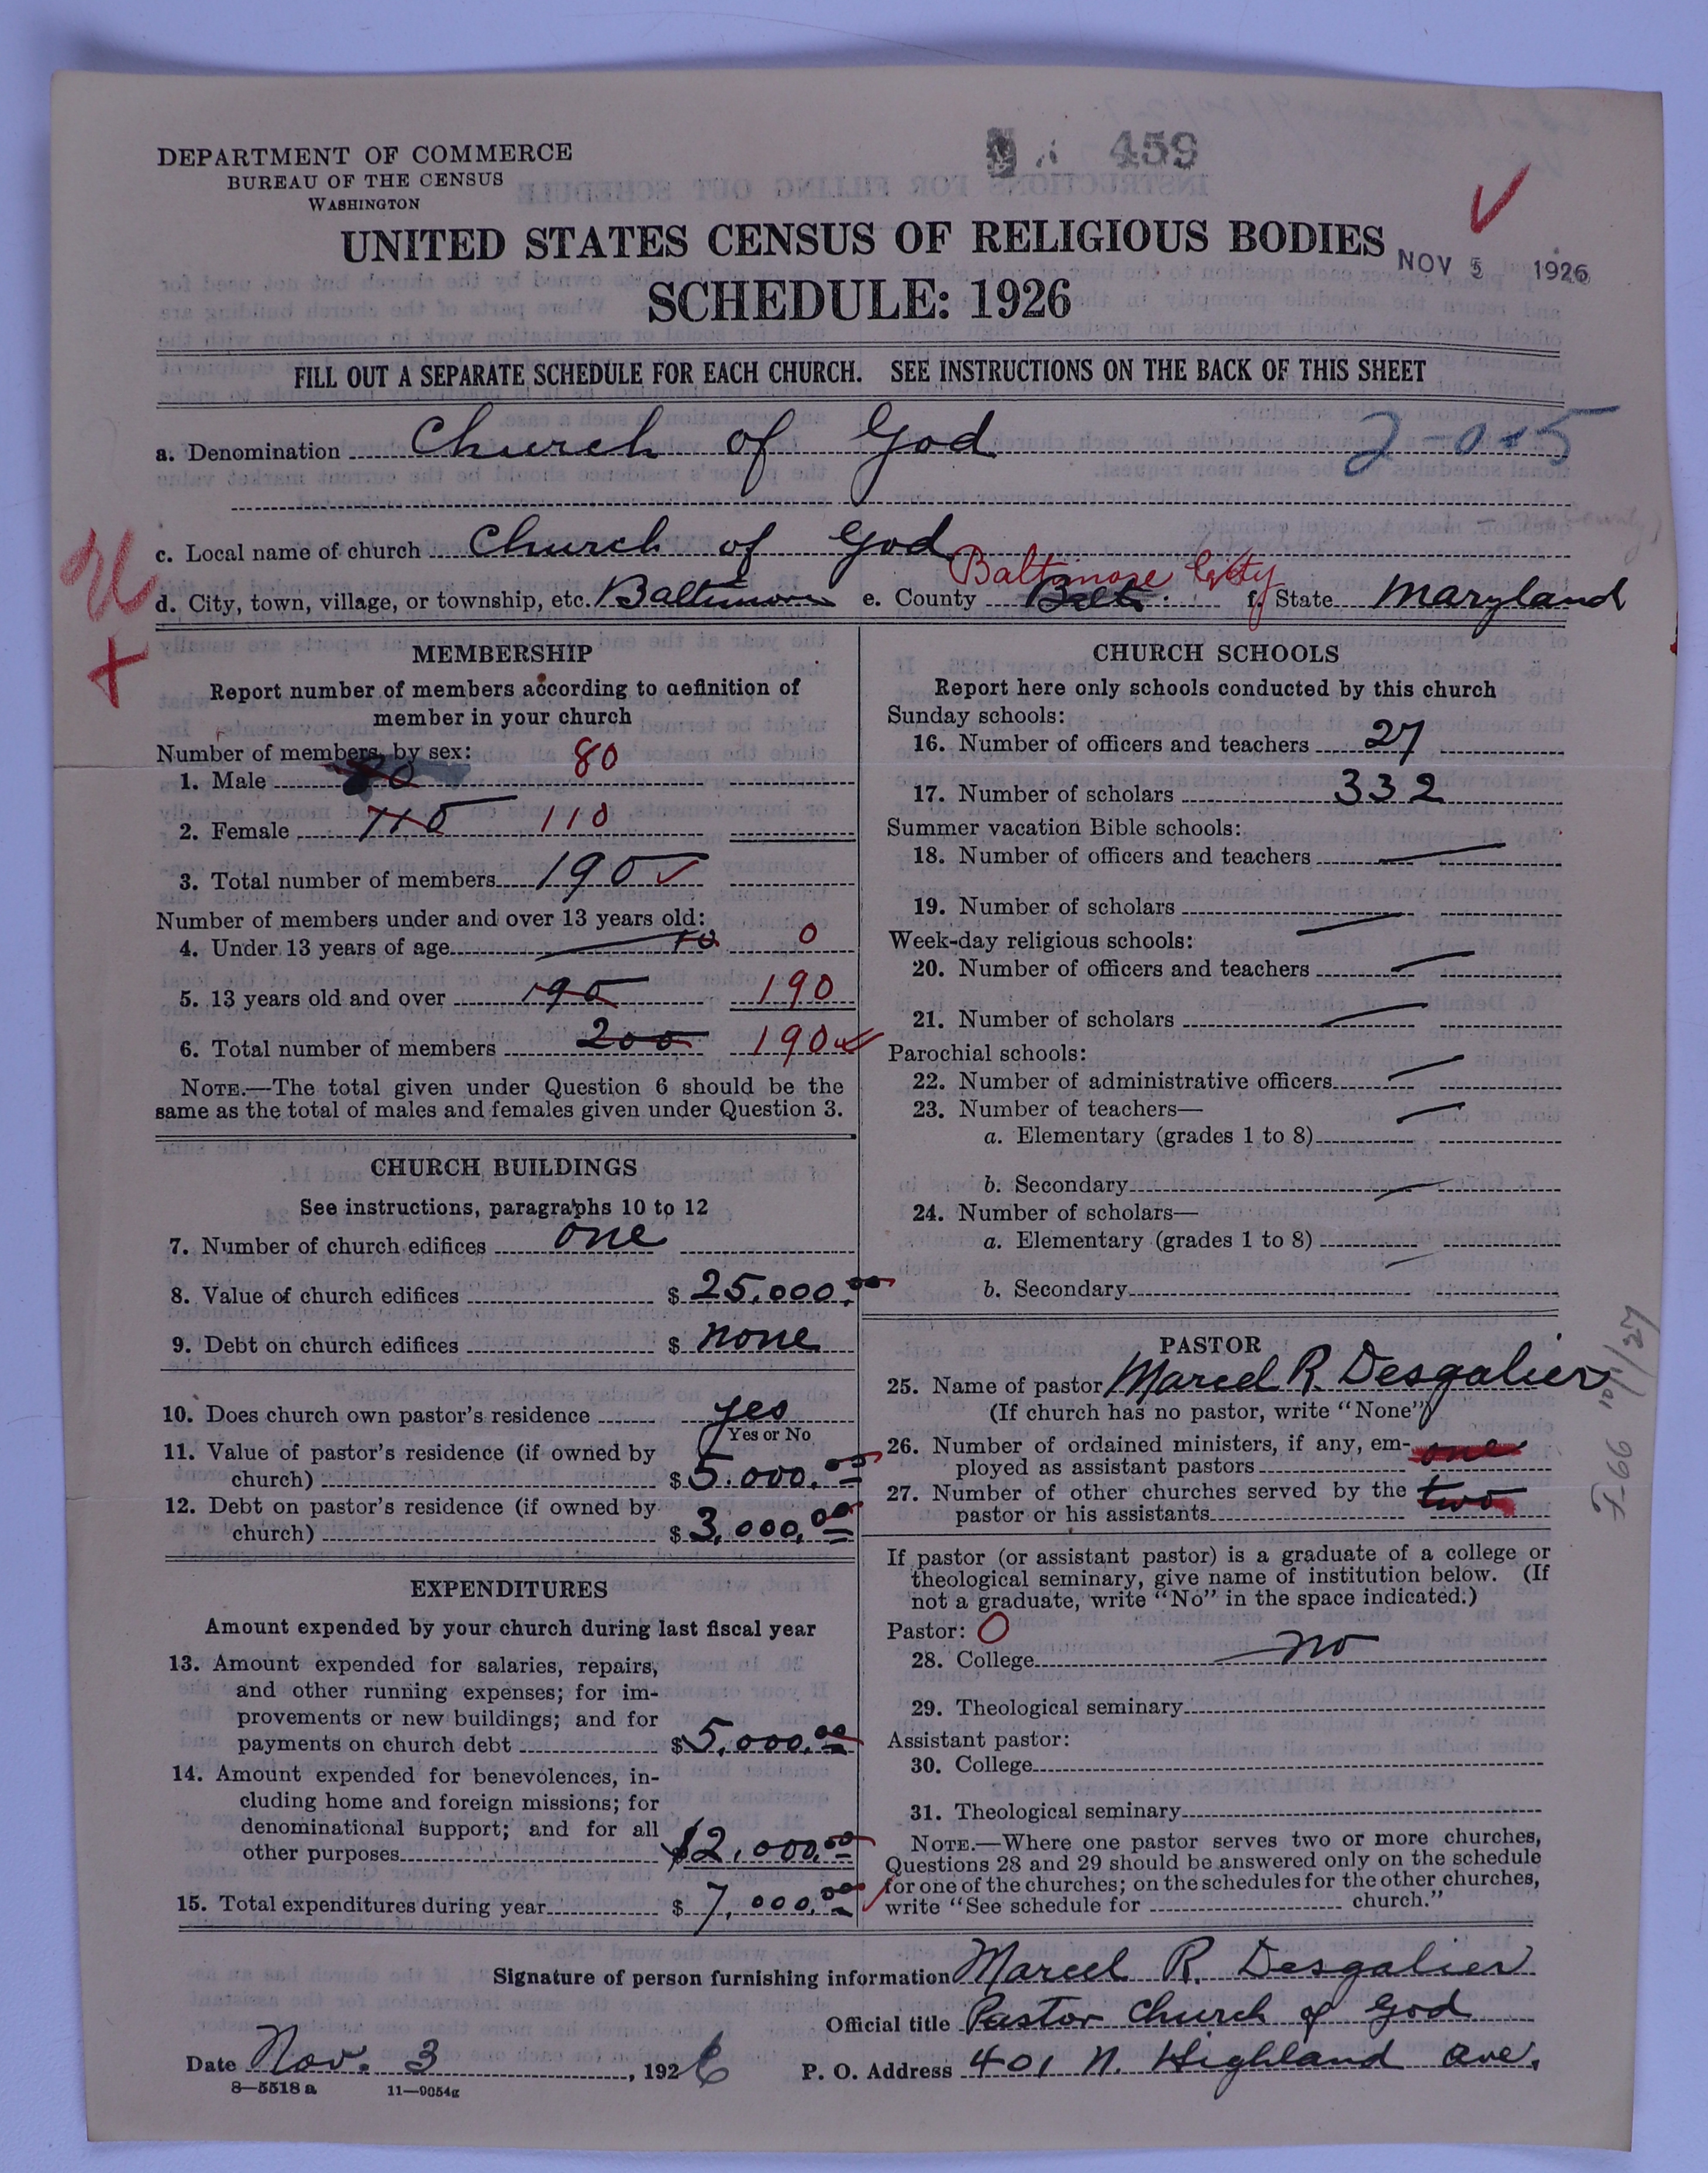 459
DEPARTMENT OF COMMERCE
BUREAU OF THE CENSUS
WASHINGTON
UNITED STATES CENSUS OF RELIGIOUS BODIES
NOV 5 1926
SCHEDULE: 1926
FILL OUT A SEPARATE SCHEDULE FOR EACH CHURCH. SEE INSTRUCTIONS ON THE BACK OF THIS SHEET
a. Denomination Church of God 2-0-5
c. Local name of church Church of God
Baltimore City
d. City, town, village, or township, etc. Baltimore e. County Balt. f. State Maryland
MEMBERSHIP
Report number of members according to definition of
member in your church
Number of members by sex:
1. Male 80 80
2. Female 110 110
3. Total number of members 190
Number of members under and over 13 years old:
4. Under 13 years of age 10 0
5. 13 years old and over 190 190
6. Total number of members 200 190
NOTE.—The total given under Question 6 should be the
same as the total of males and females given under Question 3.
CHURCH BUILDINGS
See instructions, paragraphs 10 to 12
7. Number of church edifices one
8. Value of church edifices $ 25,000.00
9. Debt on church edifices $ none
10. Does church own pastor's residence yes
Yes or No
11. Value of pastor's residence (if owned by
church) $ 5.000.00
12. Debt on pastor's residence (if owned by
church) $ 3,000.00
EXPENDITURES
Amount expended by your church during last fiscal year
13. Amount expended for salaries, repairs,
and other running expenses; for im-
provements or new buildings; and for
payments on church debt $ 5,000.00
14. Amount expended for benevolences, in-
cluding home and foreign missions; for
denominational support; and for all
other purposes $2,000.00
15. Total expenditures during year $ 7,000.00
CHURCH SCHOOLS
Report here only schools conducted by this church
Sunday schools:
16. Number of officers and teachers 27
17. Number of scholars 332
Summer vacation Bible schools:
18. Number of officers and teachers
19. Number of scholars
Week-day religious schools:
20. Number of officers and teachers
21. Number of scholars
Parochial schools:
22. Number of administrative officers
23. Number of teachers—
a. Elementary (grades 1 to 8)
b. Secondary
24. Number of scholars—
a. Elementary (grades 1 to 8)
b. Secondary
PASTOR
25. Name of pastor Marcel R. Desgalier
(If church has no pastor, write "None")
26. Number of ordained ministers, if any, em- one
ployed as assistant pastors
27. Number of other churches served by the two
pastor or his assistants
If pastor (or assistant pastor) is a graduate of a college or
theological seminary, give name of institution below. (If
not a graduate, write "No" in the space indicated.)
Pastor: 0
28. College no
29. Theological seminary
Assistant pastor:
30. College
31. Theological seminary
NOTE.—Where one pastor serves two or more churches,
Questions 28 and 29 should be answered only on the schedule
for one of the churches; on the schedules for the other churches,
write "See schedule for church."
Signature of person furnishing information Marcel R. Desgalier
Official title Pastor Church of God
Date Nov. 3, 1926 P. O. Address 401 N. Highland Ave.
8—5518 a 11—9054g